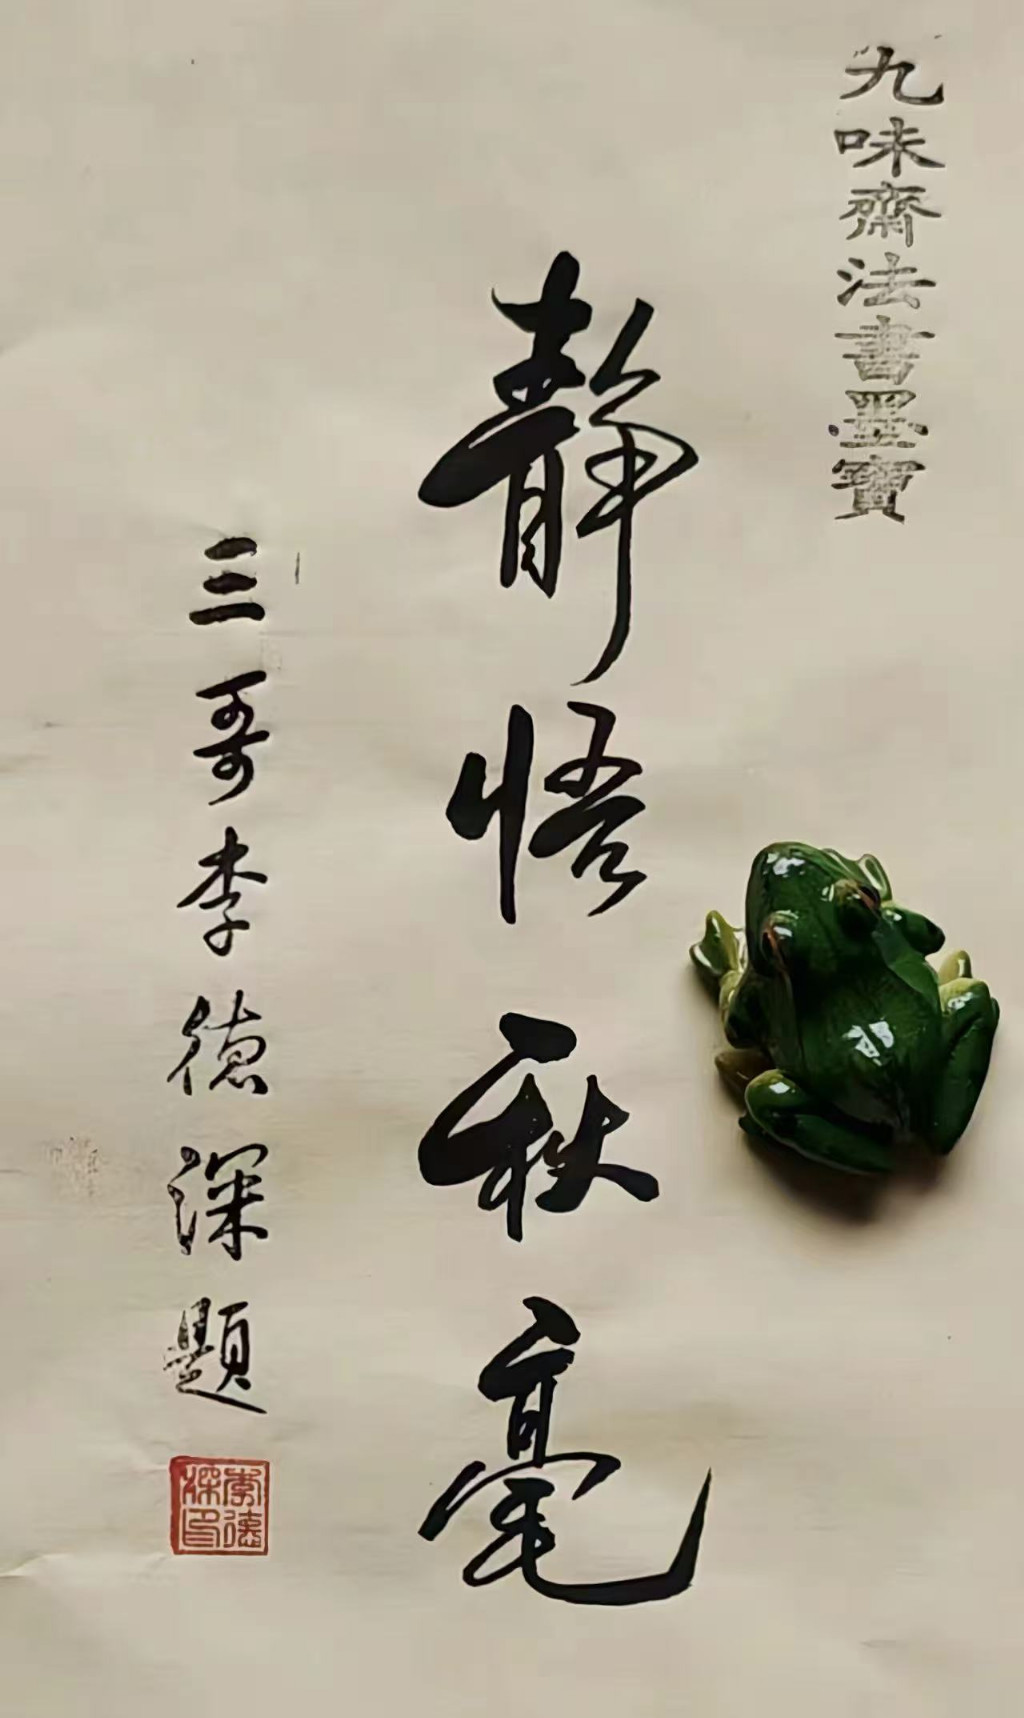 九味齋法書墨寶
靜悟秋毫
三哥李德深題
李德深印